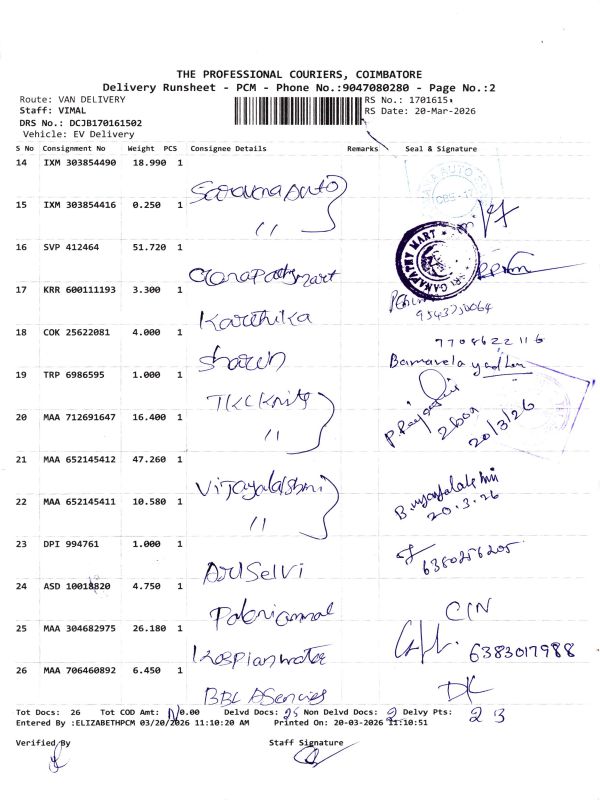 THE PROFESSIONAL COURIERS, COIMBATORE
Delivery Runsheet - PCM - Phone No.:9047080280 - Page No.:2
Route: VAN DELIVERY
Staff: VIMAL
DRS No.: DCJB170161502
Vehicle: EV Delivery
RS No.: 1701615
RS Date: 20-Mar-2026
S No Consignment No Weight PCS Consignee Details Remarks Seal & Signature
14 IXM 303854490 18.990 1 Saravana Auto
15 IXM 303854416 0.250 1 //
16 SVP 412464 51.720 1 Ganapathy mart
GANAPATHY MART
17 KRR 600111193 3.300 1 Karthika
18 COK 25622081 4.000 1 Sharun 7708622116
19 TRP 6986595 1.000 1 TKC Knits
20 MAA 712691647 16.400 1 // 20/3/26
21 MAA 652145412 47.260 1 Vijayalakshmi
22 MAA 652145411 10.580 1 // 20.3.26
23 DPI 994761 1.000 1 Arulselvi 6380256205
24 ASD 10018820 4.750 1 Palaniammal
25 MAA 304682975 26.180 1 Kaspian water 6383017988
26 MAA 706460892 6.450 1 BBL Agencies
Tot Docs: 26 Tot COD Amt: 0.00 Delvd Docs: 25 Non Delvd Docs: 2 Delvy Pts: 23
Entered By :ELIZABETHPCM 03/20/2026 11:10:20 AM Printed On: 20-03-2026 11:10:51
Verified By Staff Signature